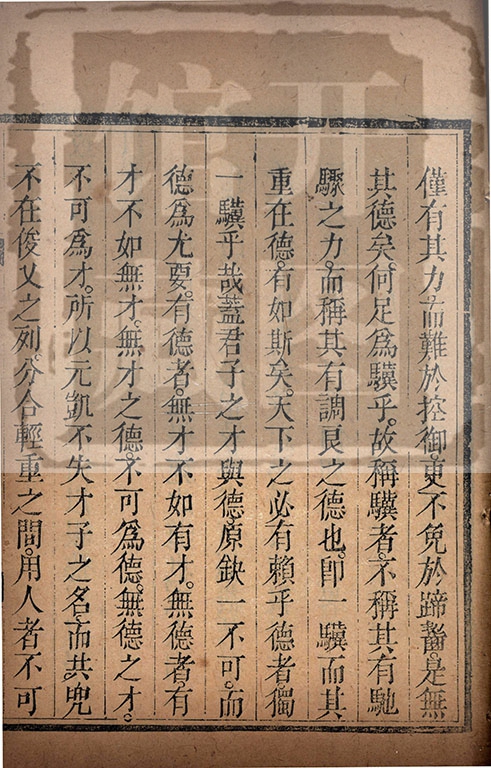 僅有其力。而難於控御。更不免於蹄齧。是無
其德矣。何足為驥乎。故稱驥者。不稱其有馳
驟之力。而稱其有調良之德也。即一驥而其
重在德。有如斯矣。天下之必有賴乎德者。獨
一驥乎哉。蓋君子之才與德。原缺一不可。而
德為尤要。有德者。無才不如有才。無德者有
才不如無才。無才之德。不可為德。無德之才。
不可為才。所以元凱不失才子之名。而共兜
不在俊乂之列。分合輕重之間。用人者不可